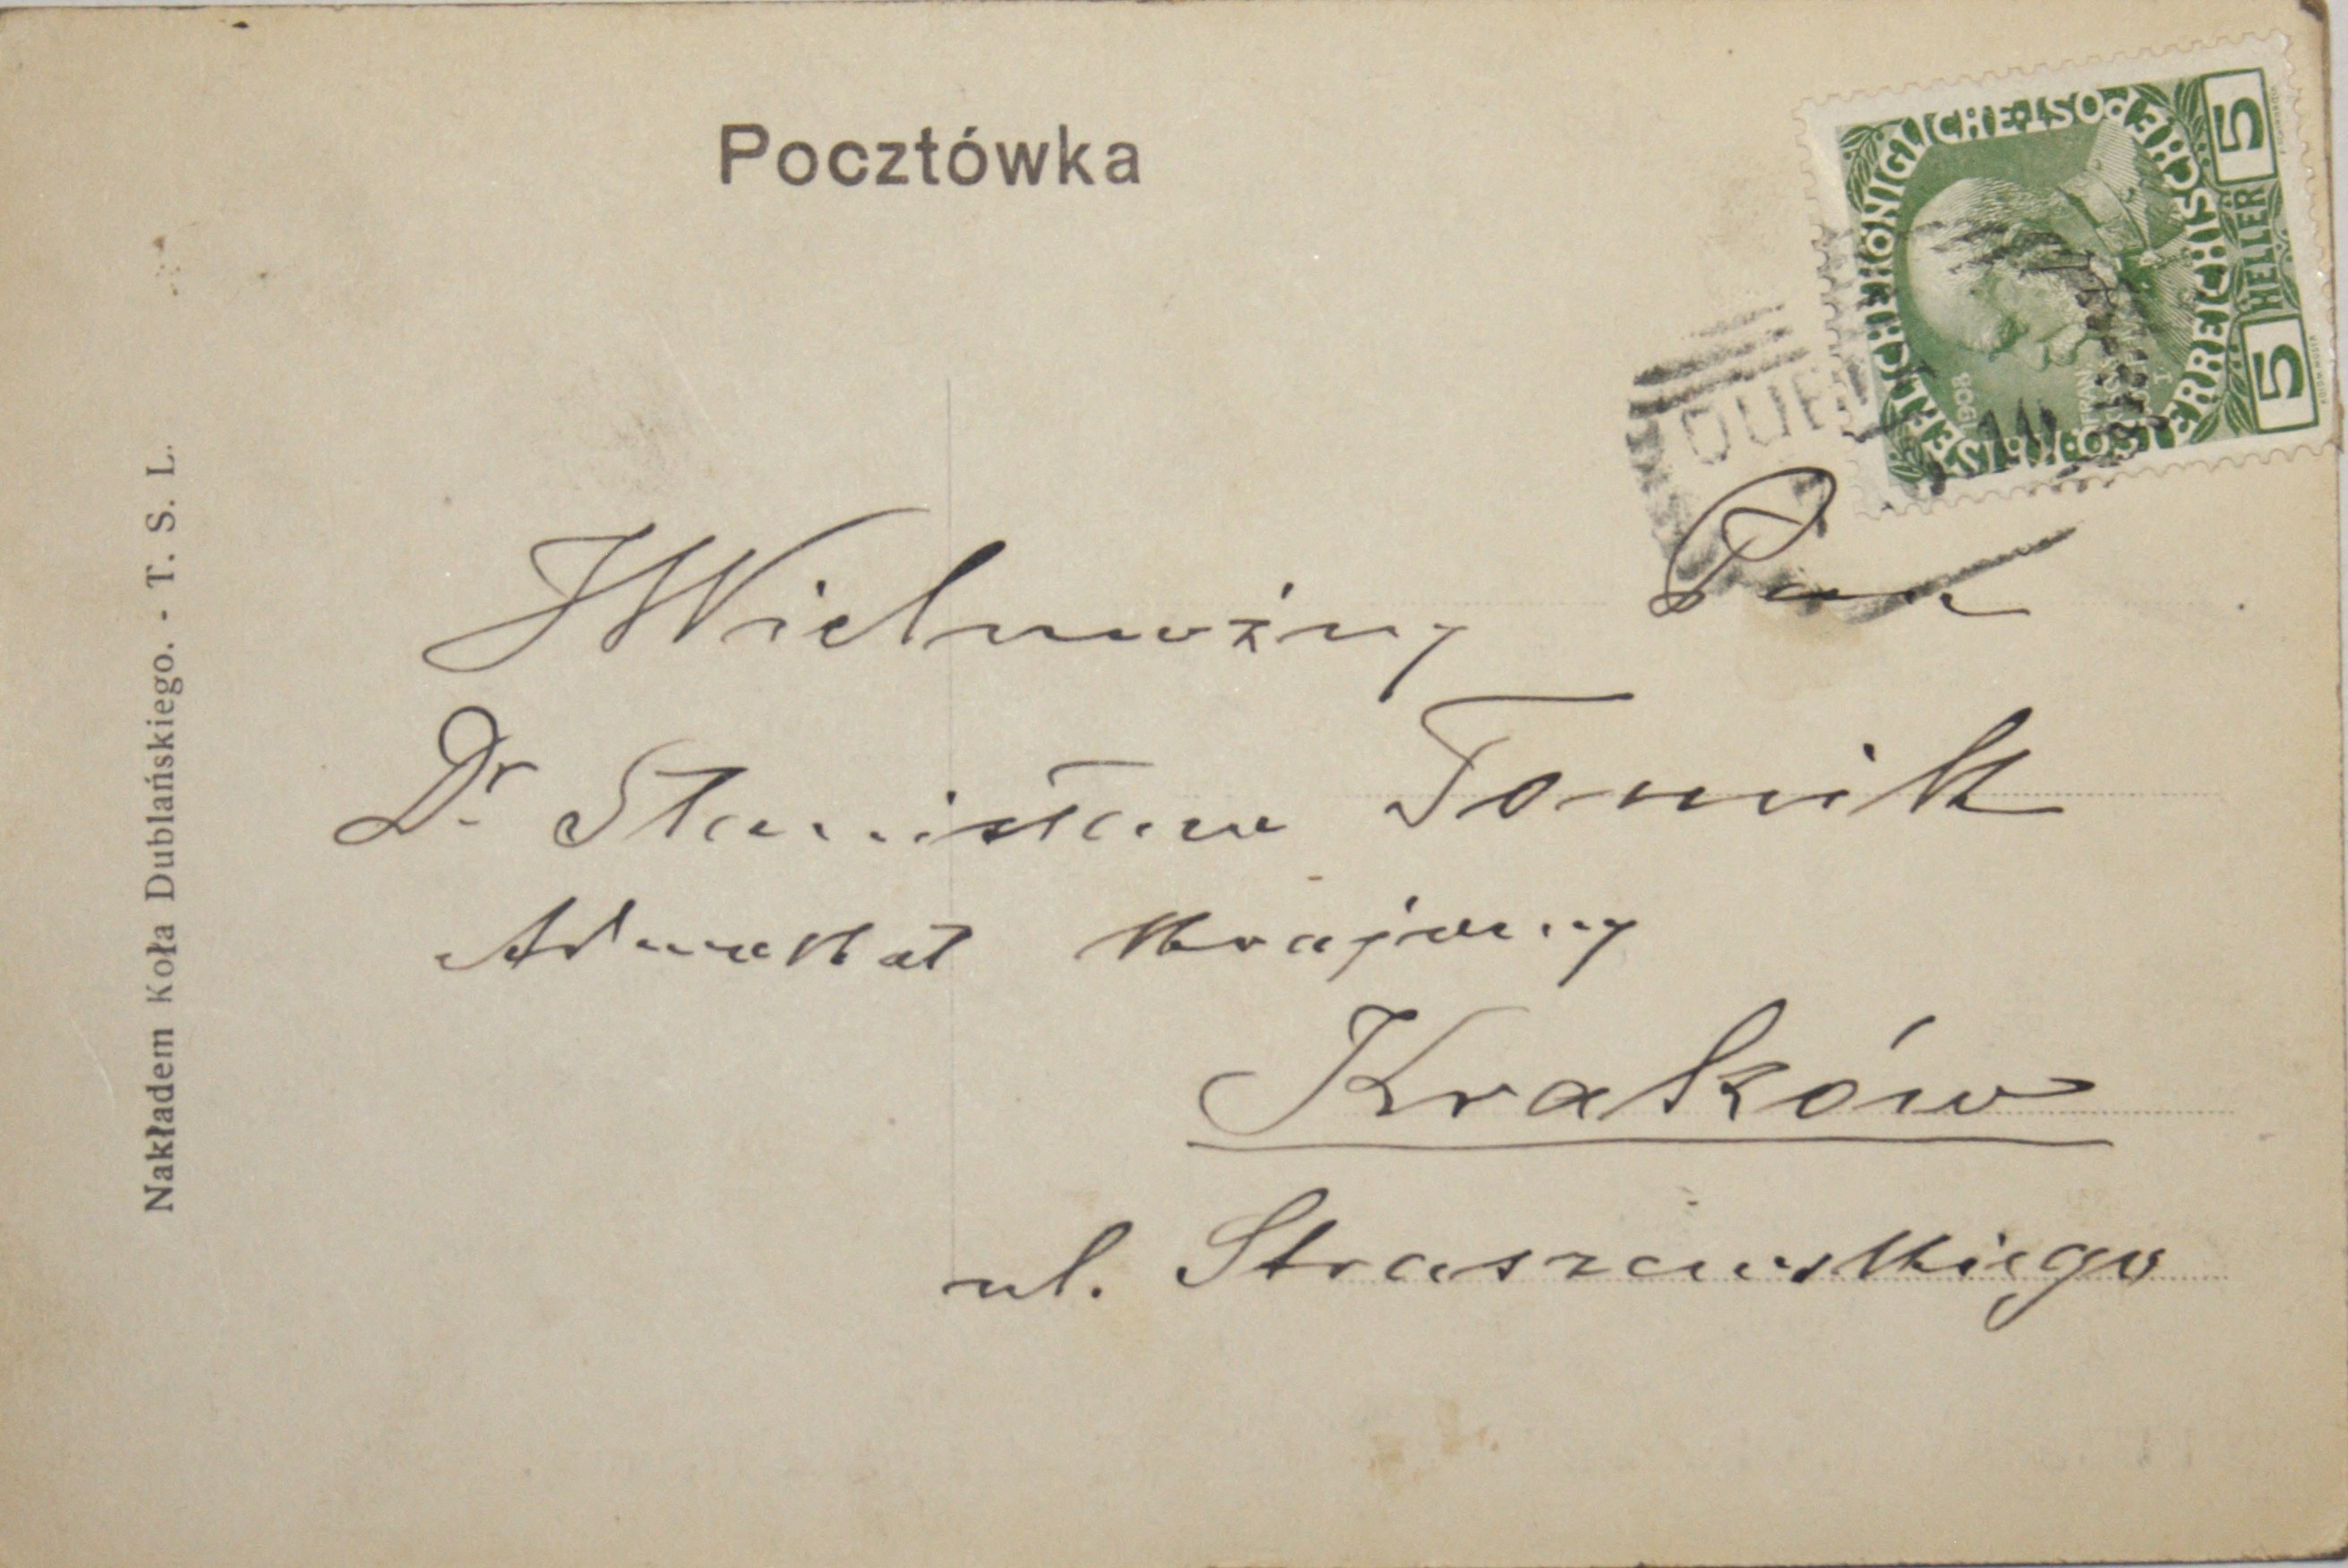 Pocztówka
KAISERLICHE KÖNIGLICHE ÖSTERREICHISCHE POST
5 HELLER 5
1908
DUBL
JWielmożny Pan
Dr. Stanisław Tomik
Adwokat krajowy
Kraków
ul. Straszewskiego
Nakładem Koła Dublańskiego. - T. S. L.